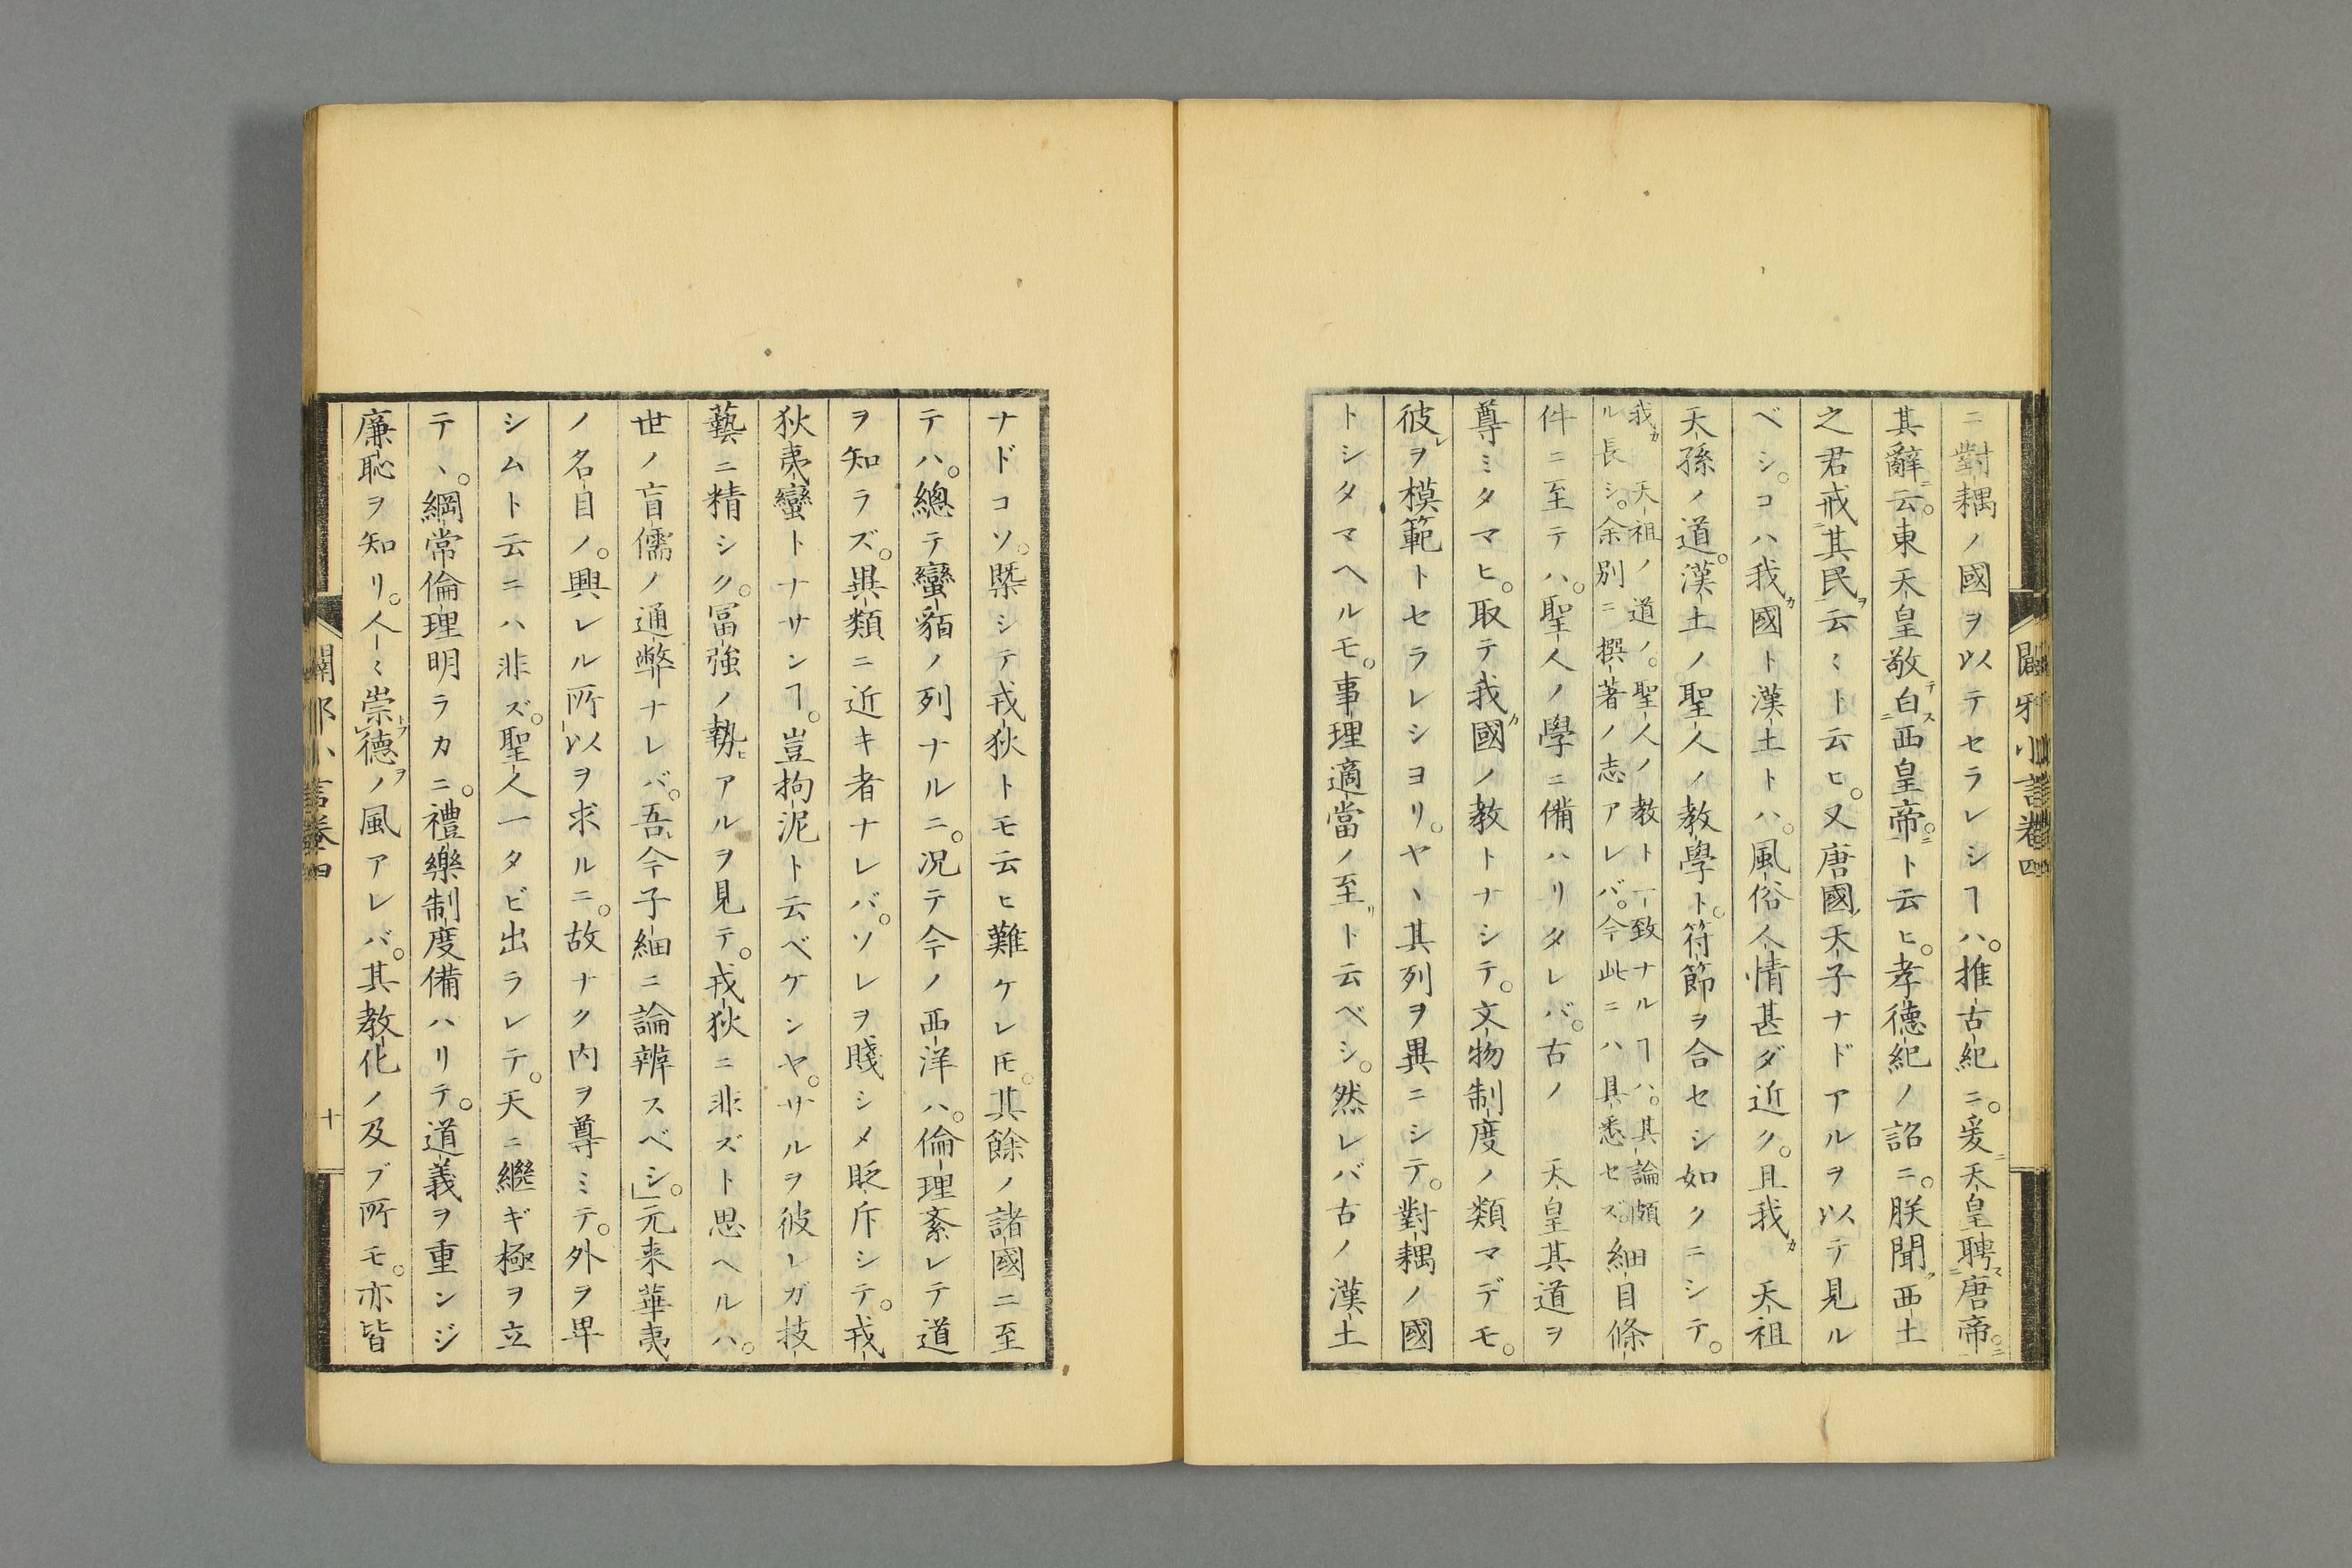 ニ對耦ノ國ヲ以テセラレシヿハ。推古紀ニ。爰ニ天皇聘スニ唐帝ニ。
其辭ニ云。東天皇敬テ白スニ西皇帝ニ。ト云ヒ。孝德紀ノ詔ニ。朕聞ク西土
之君戒ニ其民ヲ云〻ト云ヒ。又唐國ノ天子ナドアルヲ以テ見ル
ベシ。コハ我カ國ト漢土トハ。風俗人情甚ダ近ク。且我カ 天祖
天孫ノ道。漢土ノ聖人ノ教學ト。符節ヲ合セシ如クニシテ。
我カ 天祖ノ道ノ。聖人ノ教ト一致ナルヿハ。其論頗
ル長シ。余別ニ撰著ノ志アレバ。今此ニハ具悉セズ。
細目條
件ニ至テハ。聖人ノ學ニ備ハリタレバ。古ノ 天皇其道ヲ
尊ミタマヒ。取テ我カ國ノ教トナシテ。文物制度ノ類マデモ。
彼レヲ模範トセラレシヨリ。ヤヽ其列ヲ異ニシテ。對耦ノ國
トシタマヘルモ。事理適當ノ至リト云ベシ。然レバ古ノ漢土
闢邪小言卷四
ナドコソ。槩シテ戎狄トモ云ヒ難ケレ𪜈。其餘ノ諸國ニ至
テハ。總テ蠻貊ノ列ナルニ。况テ今ノ西洋ハ。倫理紊レテ道
ヲ知ラズ。異類ニ近キ者ナレバ。ソレヲ賤シメ貶斥シテ。戎
狄夷蠻トナサンヿ。豈拘泥ト云ベケンヤ。サルヲ彼レガ技
藝ニ精シク。冨強ノ勢ヒアルヲ見テ。戎狄ニ非ズト思ヘルハ。
世ノ盲儒ノ通弊ナレバ。吾レ今子細ニ論辨スベシ。」元来華夷
ノ名目ノ。興レル所以ヲ求ルニ。故ナク内ヲ尊ミテ。外ヲ卑
シムト云ニハ非ズ。聖人一タビ出ラレテ。天ニ繼ギ極ヲ立
テヽ。綱常倫理明ラカニ。禮樂制度備ハリテ。道義ヲ重ンジ
廉恥ヲ知リ。人〻崇トブ德ヲノ風アレバ。其教化ノ及ブ所モ。亦皆
闢邪小言卷四
十